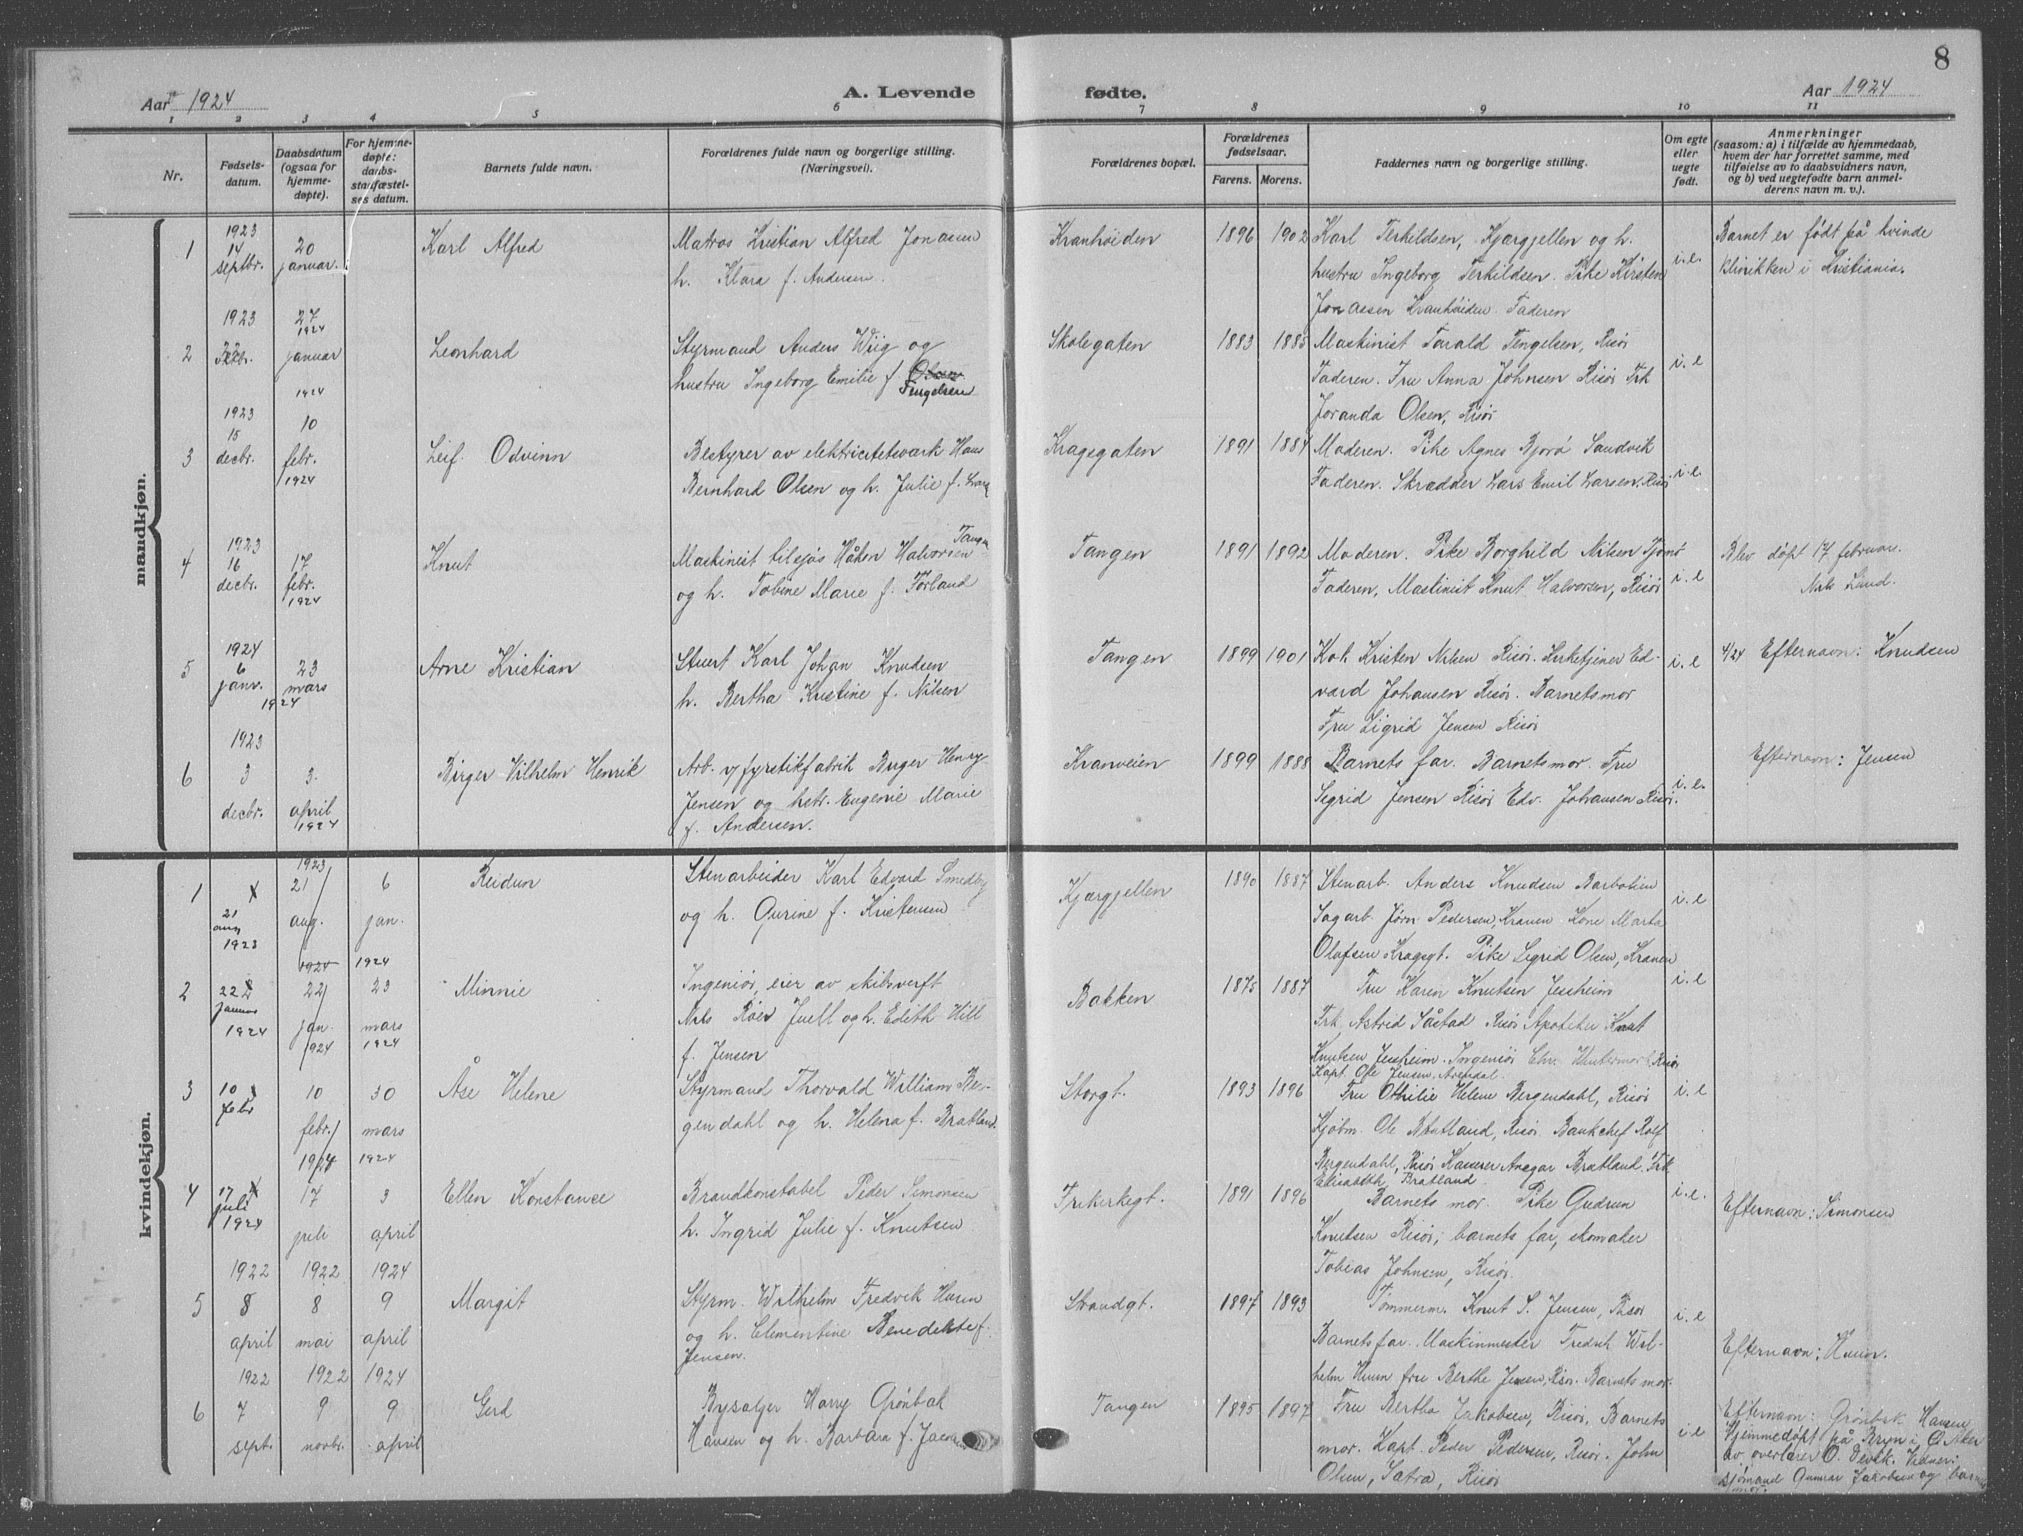 8
Aar 1924
A. Levende
fødte.
Aar 1924
1 2 3 4 5 6 7 8 9 10 11
Nr.
Fødsels-
datum.
Daabsdatum
(ogsaa for
hjemme-
døpte).
For hjemme-
døpte:
daabs-
stadfæstel-
ses datum.
Barnets fulde navn.
Forældrenes fulde navn og borgerlige stilling.
(Næringsvei).
Forældrenes bopæl.
Forældrenes
fødselsaar.
Farens. Morens.
Faddernes navn og borgerlige stilling.
Om egte
eller
uegte
født.
Anmerkninger
(saasom: a) i tilfælde av hjemmedaab,
hvem der har forrettet samme, med
tilføielse av to daabsvidners navn,
og b) ved uegtefødte barn anmel-
derens navn m. v.).
mandkjøn.
1
1923
14
septbr.
20
januar.
Karl Alfred
Matros Kristian Alfred Jonasen
h. Klara f. Andersen.
Kranhøiden
1896 1902
Karl Terkildsen, Kjærgjellen og h.
hustru Ingeborg Terkildsen. Pike Kirsten
Jonassen Kranhøiden. Faderen
i.e.
Barnet er født på kvinde
klinikken i Kristiania.
2
1923
decbr.
27
1924
januar
Leonhard
Styrmand Anders Wiig og
hustru Ingeborg Emilie f. Olsen
Tengelsen
Skolegaten
1883 1885
Maskinist Torald Tengelsen, Risør
Faderen. Fru Anna Johnsen Risør Frk
Joranda Olsen, Risør
i.e
3
1923
15
decbr.
1924
10
febr.
Leif Odvinn
Bestyrer av elektricitetsverk Hans
Bernhard Olsen og h. Julie f.
Kragsgaten
1891 1884
Moderen. Pike Agnes Bjorø Sandvik
Faderen. Skrædder Lars Emil Larsen, Risør
i.e
4
1923
16
decbr.
1924
17
febr.
Knut
Maskinist tilsjøs Håkon Halvorsen Tangen
og h. Tobine Marie f. Førland
Tangen
1891 1892
Moderen. Pike Borghild Nilsen Tjomø
Faderen, Maskinist Knut Halvorsen, Risør
i.e
Blev døpt 17 februar.
Nils Lund.
5
1924
6
janv.
1924
23
mars
Arne Kristian
Stuert Karl Johan Knudsen
h. Bertha Kristine f. Nilsen
Tangen
1899 1901
Kok Kristen Nilsen Risør. Kirketjener Ed-
vard Johansen Risør. Barnets mor
Fru Sigrid Jensen Risør
i.e
4/24 Efternavn: Knudsen
6
1923
3
decbr.
1924
3.
april
1924
Birger Vilhelm Henrik
Arb. v/fyrstikfabrik Birger Henry
Jensen og hstr. Eugenie Marie
f. Andersen.
Kranveien
1899 1888
Barnets far. Barnets mor. Fru
Sigrid Jensen Risør Edv. Johansen Risør.
i.e.
Efternavn: Jensen
kvindekjøn.
1
21
aug
1923
1923
21
aug.
6
jan.
1924
Reidun
Stenarbeider Karl Edvard Smedby
og h. Gurine f. Kristensen
Kjærgjellen
1890 1887
Stenarb. Anders Knudsen Barbotien
Sagarb. Jørn Pedersen, Kranen Kone Marta
Olafsen Kragsgt. Pike Sigrid Olsen, Kranen
i.e
2
22
januar
1924
1924
22
jan.
1924
23
mars
1924
Minnie
Ingeniør, eier av skibsverft
Nils Roer Juell og h. Edith Hill
f. Jensen
Bakken
1875 1887
Fru Karen Knutsen Jessheim
Frk. Astrid Såstad Risør Apoteker Knut
Knutsen Jessheim. Ingeniør Chr. Wintermork Risør
Kapt. Ole Jensen, Arendal
i.e
3
10
febr
10
febr.
1924
30
mars
1924
Åse Helene
Styrmand Thorvald William Ber-
gendahl og h. Helena f. Bratland.
Storgt.
1893 1896
Fru Othilie Helene Bergendahl, Risør
Kjøbm. Ole Bratland, Risør. Bankchef Rolf
Bergendahl, Risør Kasserer Ansgar Bratland. Frk.
Elisabeth Bratland
i.e
4
17
juli
1924
17
juli
3
april
Ellen Konstance
Brandkonstabel Peder Simonsen
h. Ingrid Julie f. Knutsen
Frikirkegt.
1891 1896
Barnets mor. Pike Gudrun
Knutsen Risør; barnets far, skomaker
Tobias Johnsen, Risør.
i.e.
Efternavn: Simonsen
5
1922
8
april
1922
8
mai
1924
9
april
Margit
Styrm. Wilhelm Fredrik Huun
og h. Clementine Benedikte f.
Jensen.
Strandgt.
1897 1893
Tømmerm. Knut S. Jensen, Risør
Barnets far. Maskinmester Fredrik Wil-
helm Huun fru Berthe Jensen, Risør. Barnets mor.
i.e
Efternavn: Huun.
6
1922
7
sept.
1922
9
novbr.
1924
9
april
Gerd
Bysælger Harry Grønbæk
Hansen og h. Barbara f. Jacob
Tangen
1895 1897
Fru Bertha Jakobsen, Risør, Barnets
mor. Kapt. Peder Pedersen, Risør. John
Olsen, Satra, Risør
i.e
Efternavn: Grønbæk Hansen
Hjemmedøpt på Bryn i Ø. Aker
av overlærer O. Devik. Vidner:
Sjømand Gunnar Jakobsen og barnets
mor.